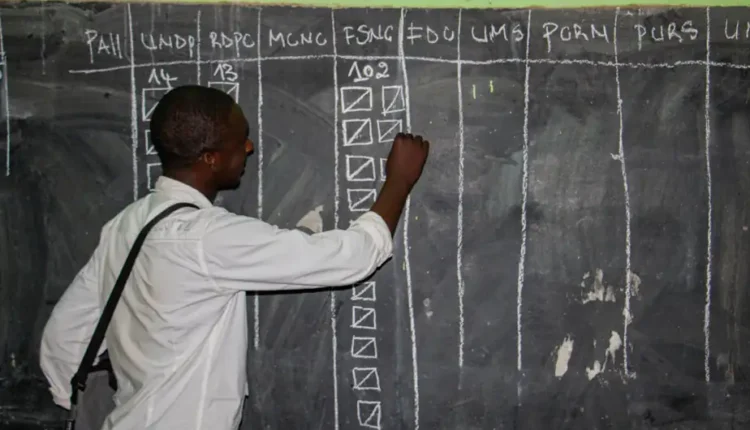 PAII UNDP RDPC MCNC FSNC FDC UMS PCRN PURS
14 13 102